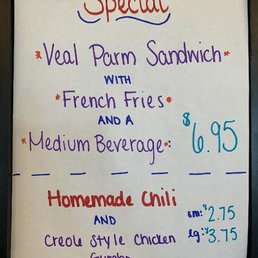 Special
*Veal Parm Sandwich*
WITH
*French Fries*
AND A
*Medium Beverage*: $6.95
Homemade Chili
AND
sm: $2.75
Creole Style Chicken
lg: $3.75
Gumbo